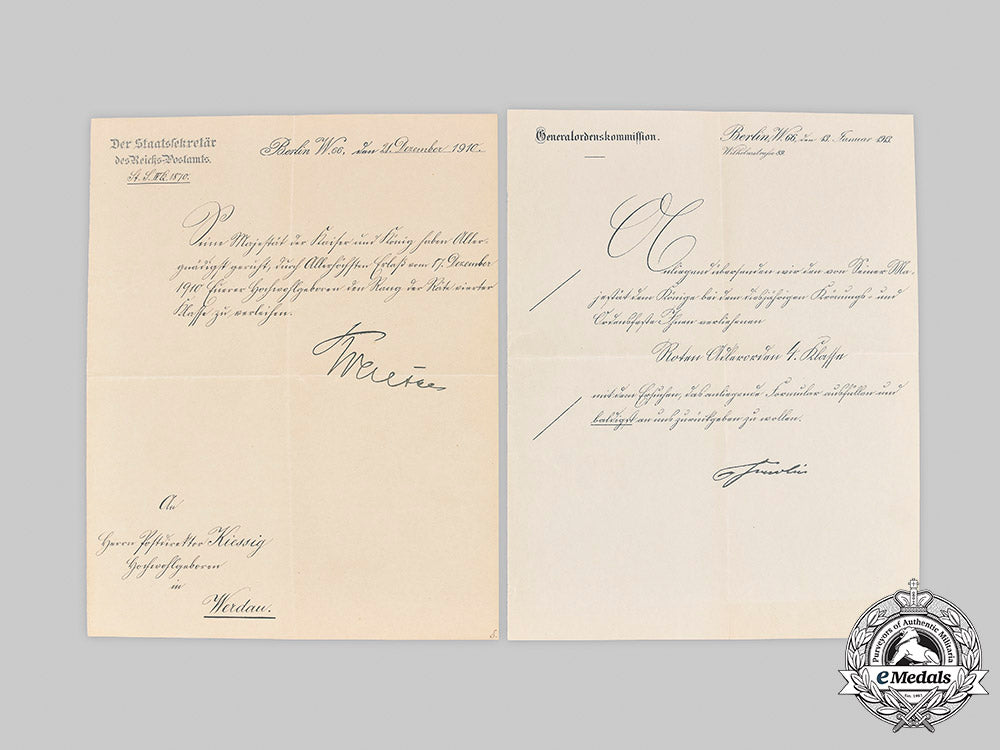 Der Staatssekretär
des Reichs-Postamts.
Berlin W66, den 21. Dezember 1910.
Seine Majestät der Kaiser und König haben Aller-
gnädigst geruht, durch Allerhöchsten Erlaß vom 17. Dezember
1910 Euerer Hochwohlgeboren den Rang der Räte vierter
Klasse zu verleihen.
An
Herrn Postdirektor Kiessig
Hochwohlgeboren
in
Werdau.
Generalordenskommission.
Berlin, W66, den 12. Januar 1913.
Wilhelmstraße
Anliegend übersenden wir den von Seiner Ma-
jestät dem Könige bei dem diesjährigen Krönungs- und
Ordensfeste Ihnen verliehenen
Roten Adlerorden 4. Klasse
mit dem Ersuchen, das anliegende Formular ausfüllen und
baldigst an uns zurückgeben zu wollen.
Purveyors of Authentic Militaria
eMedals